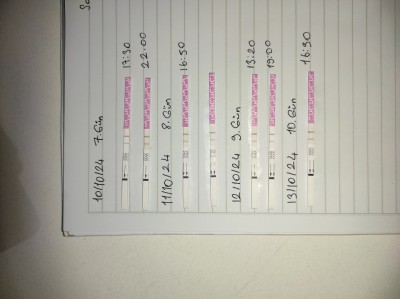 10/10/24 7.Gün
17:30
22:00
11/10/24 8.Gün
16:50
12/10/24 9.Gün
13:20
19:00
13/10/24 10.Gün
16:30